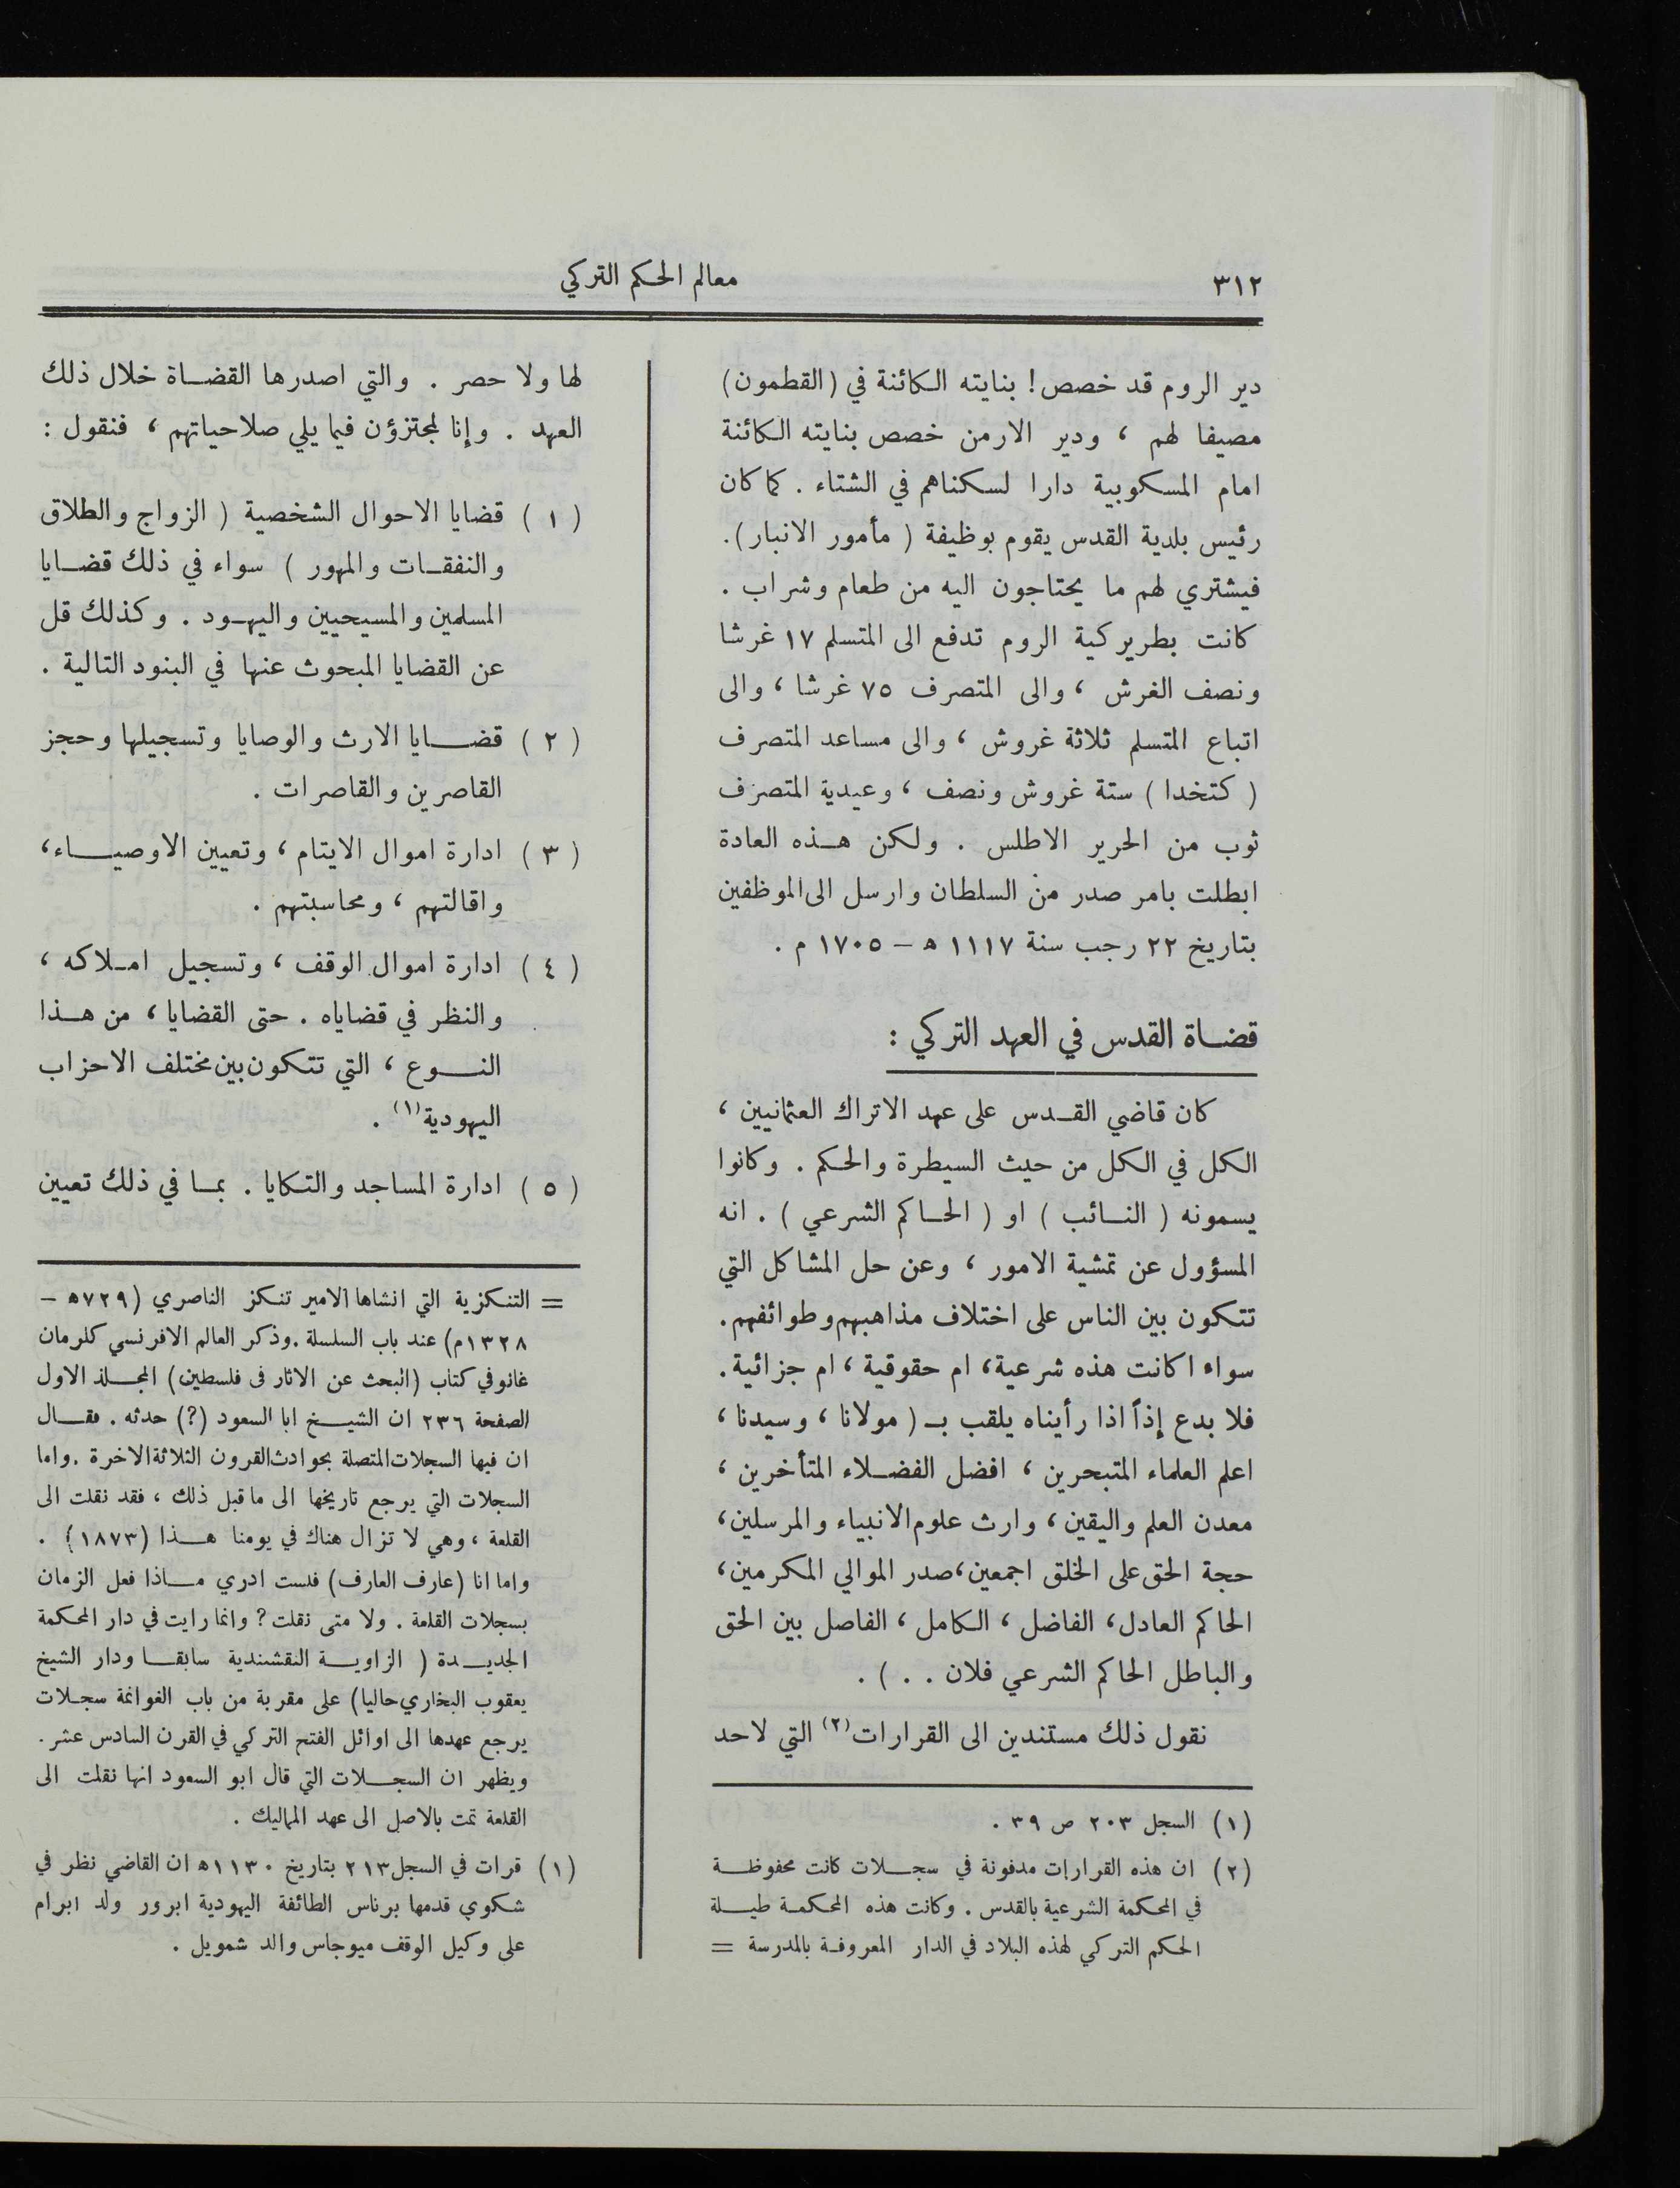 ٣١٢
معالم الحكم التركي
دير الروم قد خصص ! بنايته الكائنة في (القطمون)
مصيفا لهم ، ودير الارمن خصص بنايته الكائنة
امام المسكوبية دارا لسكناهم في الشتاء . كما كان
رئيس بلدية القدس يقوم بوظيفة ( مأمور الانبار ) .
فيشتري لهم ما يحتاجون اليه من طعام وشراب .
كانت بطريركية الروم تدفع الى المتسلم ١٧ غرشا
ونصف الغرش ، والى المتصرف ٧٥ غرشا ، والى
اتباع المتسلم ثلاثة غروش ، والى مساعد المتصرف
( كتخدا ) ستة غروش ونصف ، وعيدية المتصرف
ثوب من الحرير الاطلس . ولكن هذه العادة
ابطلت بامر صدر من السلطان وارسل الى الموظفين
بتاريخ ٢٢ رجب سنة ١١١٧ ه – ١٧٠٥ م .
قضاة القدس في العهد التركي :
كان قاضي القدس على عهد الاتراك العثمانيين ،
الكل في الكل من حيث السيطرة والحكم . وكانوا
يسمونه ( النائب ) او ( الحاكم الشرعي ) . انه
المسؤول عن تمشية الامور ، وعن حل المشاكل التي
تتكون بين الناس على اختلاف مذاهبهم وطوائفهم .
سواء اكانت هذه شرعية ، ام حقوقية ، ام جزائية .
فلا بدع إذاً اذا رأيناه يلقب بـ ( مولانا ، وسيدنا ،
اعلم العلماء المتبحرين ، افضل الفضلاء المتأخرين ،
معدن العلم واليقين ، وارث علوم الانبياء والمرسلين ،
حجة الحق على الخلق اجمعين ، صدر الموالي المكرمين ،
الحاكم العادل ، الفاضل ، الكامل ، الفاصل بين الحق
والباطل الحاكم الشرعي فلان . . ) .
نقول ذلك مستندين الى القرارات (٢) التي لاحد
(١) السجل ٢٠٣ ص ٣٩ .
(٢) ان هذه القرارات مدفونة في سجلات كانت محفوظة
في المحكمة الشرعية بالقدس . وكانت هذه المحكمة طيلة
الحكم التركي لهذه البلاد في الدار المعروفة بالمدرسة =
لها ولا حصر . والتي اصدرها القضاة خلال ذلك
العهد . وإنا لمجتزؤن فيما يلي صلاحياتهم ، فنقول :
( ١ ) قضايا الاحوال الشخصية ( الزواج والطلاق
والنفقات والمهور ) سواء في ذلك قضايا
المسلمين والمسيحيين واليهود . وكذلك قل
عن القضايا المبحوث عنها في البنود التالية .
( ٢ ) قضايا الارث والوصايا وتسجيلها وحجز
القاصرين والقاصرات .
( ٣ ) ادارة اموال الايتام ، وتعيين الاوصياء ،
واقالتهم ، ومحاسبتهم .
( ٤ ) ادارة اموال الوقف ، وتسجيل املاكه ،
والنظر في قضاياه . حتى القضايا ، من هذا
النوع ، التي تتكون بين مختلف الاحزاب
اليهودية (١) .
( ٥ ) ادارة المساجد والتكايا . بما في ذلك تعيين
= التنكزية التي انشاها الامير تنكز الناصري (٧٢٩ه –
١٣٢٨م) عند باب السلسلة . وذكر العالم الافرنسي كلرمان
غانو في كتاب (البحث عن الاثار فى فلسطين) المجلد الاول
الصفحة ٢٣٦ ان الشيخ ابا السعود (؟) حدثه . فقال
ان فيها السجلات المتصلة بحوادث القرون الثلاثة الاخرة . واما
السجلات التي يرجع تاريخها الى ما قبل ذلك ، فقد نقلت الى
القلعة ، وهي لا تزال هناك في يومنا هذا (١٨٧٣) .
واما انا (عارف العارف) فلست ادري ماذا فعل الزمان
بسجلات القلعة . ولا متى نقلت ؟ وانما رايت في دار المحكمة
الجديدة ( الزاوية النقشبندية سابقا ودار الشيخ
يعقوب البخاري حاليا) على مقربة من باب الغوانمة سجلات
يرجع عهدها الى اوائل الفتح التركي في القرن السادس عشر .
ويظهر ان السجلات التي قال ابو السعود انها نقلت الى
القلعة تمت بالاصل الى عهد المماليك .
(١) قرات في السجل ٢١٣ بتاريخ ١١٣٠ه ان القاضي نظر في
شكوي قدمها برناس الطائفة اليهودية ابرور ولد ابرام
على وكيل الوقف ميوجاس والد شمويل .